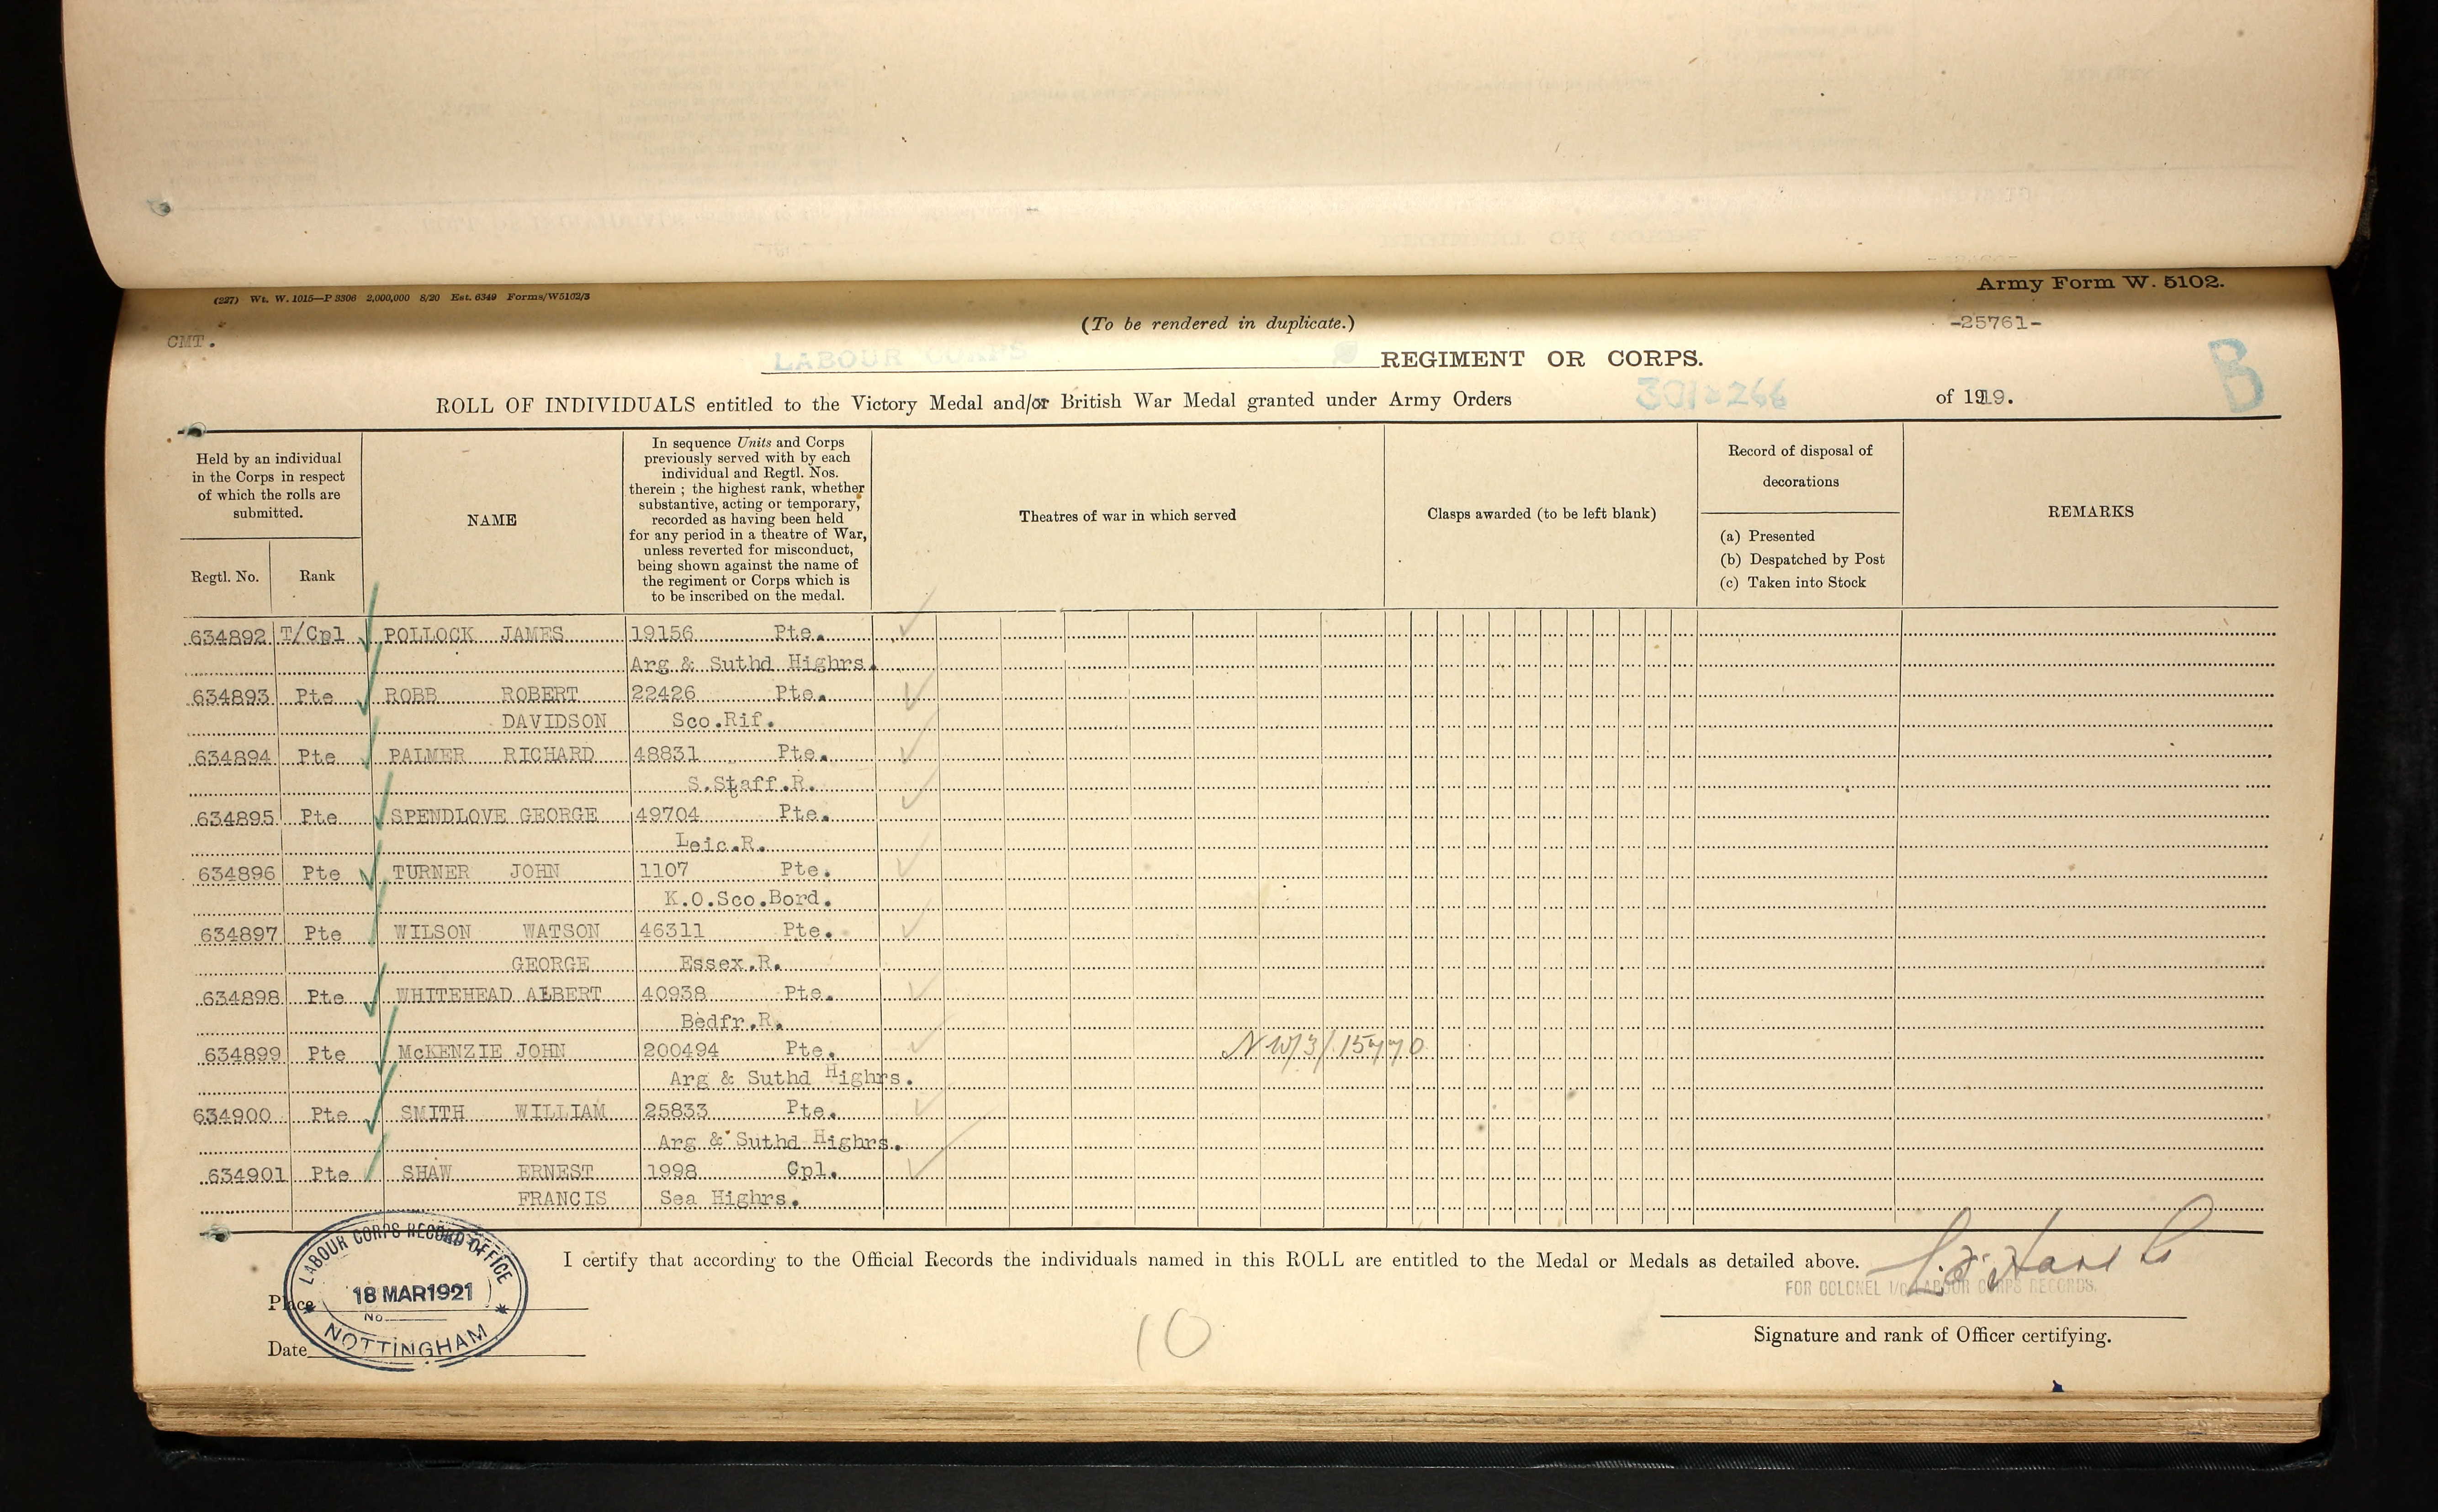 (227) Wt. W. 1015—P 3306 2,000,000 8/20 Est. 6349 Forms/W5102/3
Army Form W. 5102.
(To be rendered in duplicate.)
-25761-
CMT.
LABOUR CORPS REGIMENT OR CORPS.
B
ROLL OF INDIVIDUALS entitled to the Victory Medal and/or British War Medal granted under Army Orders 301 & 266 of 1919.
Held by an individual
in the Corps in respect
of which the rolls are
submitted.
Regtl. No. Rank
NAME
In sequence Units and Corps
previously served with by each
individual and Regtl. Nos.
therein ; the highest rank, whether
substantive, acting or temporary,
recorded as having been held
for any period in a theatre of War,
unless reverted for misconduct,
being shown against the name of
the regiment or Corps which is
to be inscribed on the medal.
Theatres of war in which served
Clasps awarded (to be left blank)
Record of disposal of
decorations
(a) Presented
(b) Despatched by Post
(c) Taken into Stock
REMARKS
634892 T/Cpl POLLOCK JAMES 19156 Pte.
Arg & Suthd Highrs.
634893 Pte ROBB ROBERT 22426 Pte.
DAVIDSON Sco.Rif.
634894 Pte PALMER RICHARD 48831 Pte.
S.Staff.R.
634895 Pte SPENDLOVE GEORGE 49704 Pte.
Leic.R.
634896 Pte TURNER JOHN 1107 Pte.
K.O.Sco.Bord.
634897 Pte WILSON WATSON 46311 Pte.
GEORGE Essex.R.
634898 Pte WHITEHEAD ALBERT 40938 Pte.
Bedfr.R.
634899 Pte McKENZIE JOHN 200494 Pte. NW/3/15770
Arg & Suthd Highrs.
634900 Pte SMITH WILLIAM 25833 Pte.
Arg & Suthd Highrs.
634901 Pte SHAW ERNEST 1998 Cpl.
FRANCIS Sea Highrs.
I certify that according to the Official Records the individuals named in this ROLL are entitled to the Medal or Medals as detailed above.
LABOUR CORPS RECORD OFFICE
18 MAR 1921
No.
NOTTINGHAM
Place
Date
10
FOR COLONEL I/C LABOUR CORPS RECORDS.
Signature and rank of Officer certifying.